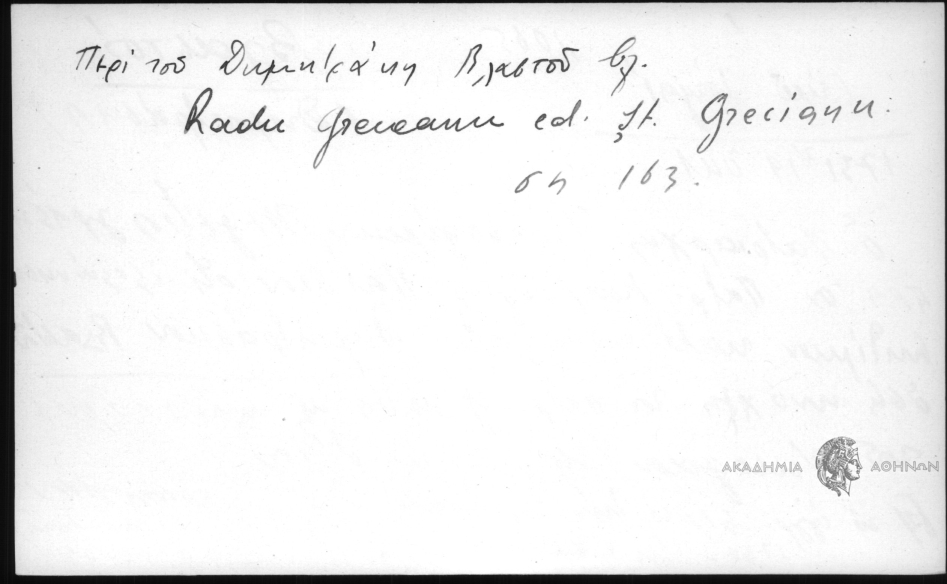 Περί τοῦ Δημητράκη Βλαστοῦ βλ.
Radu Greceanu ed. Șt. Grecianu.
ση 163.
ΑΚΑΔΗΜΙΑ ΑΘΗΝΩΝ